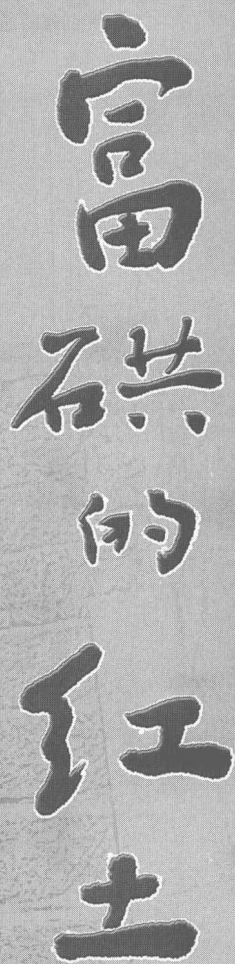 富硔的红土